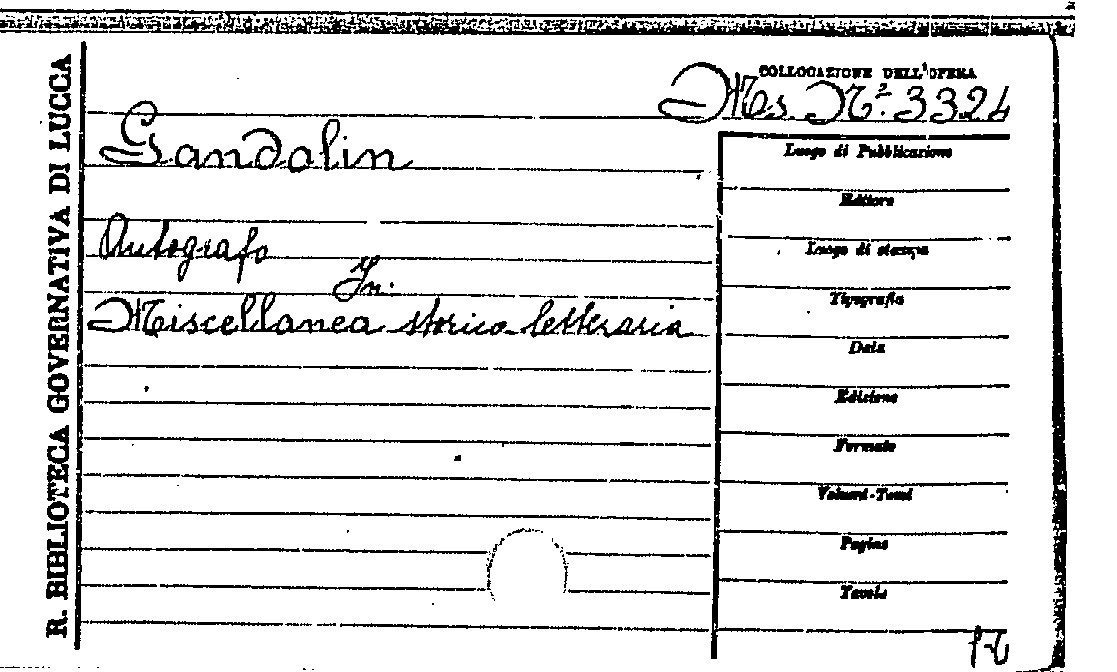 R. BIBLIOTECA GOVERNATIVA DI LUCCA
COLLOCAZIONE DELL'OPERA
Ms. Nº. 3324
Gandolin
Autografo
In.
Miscellanea storico letteraria
Luogo di Pubblicazione
Editore
Luogo di stampa
Tipografia
Data
Edizione
Formato
Volumi-Tomi
Pagine
Tavole